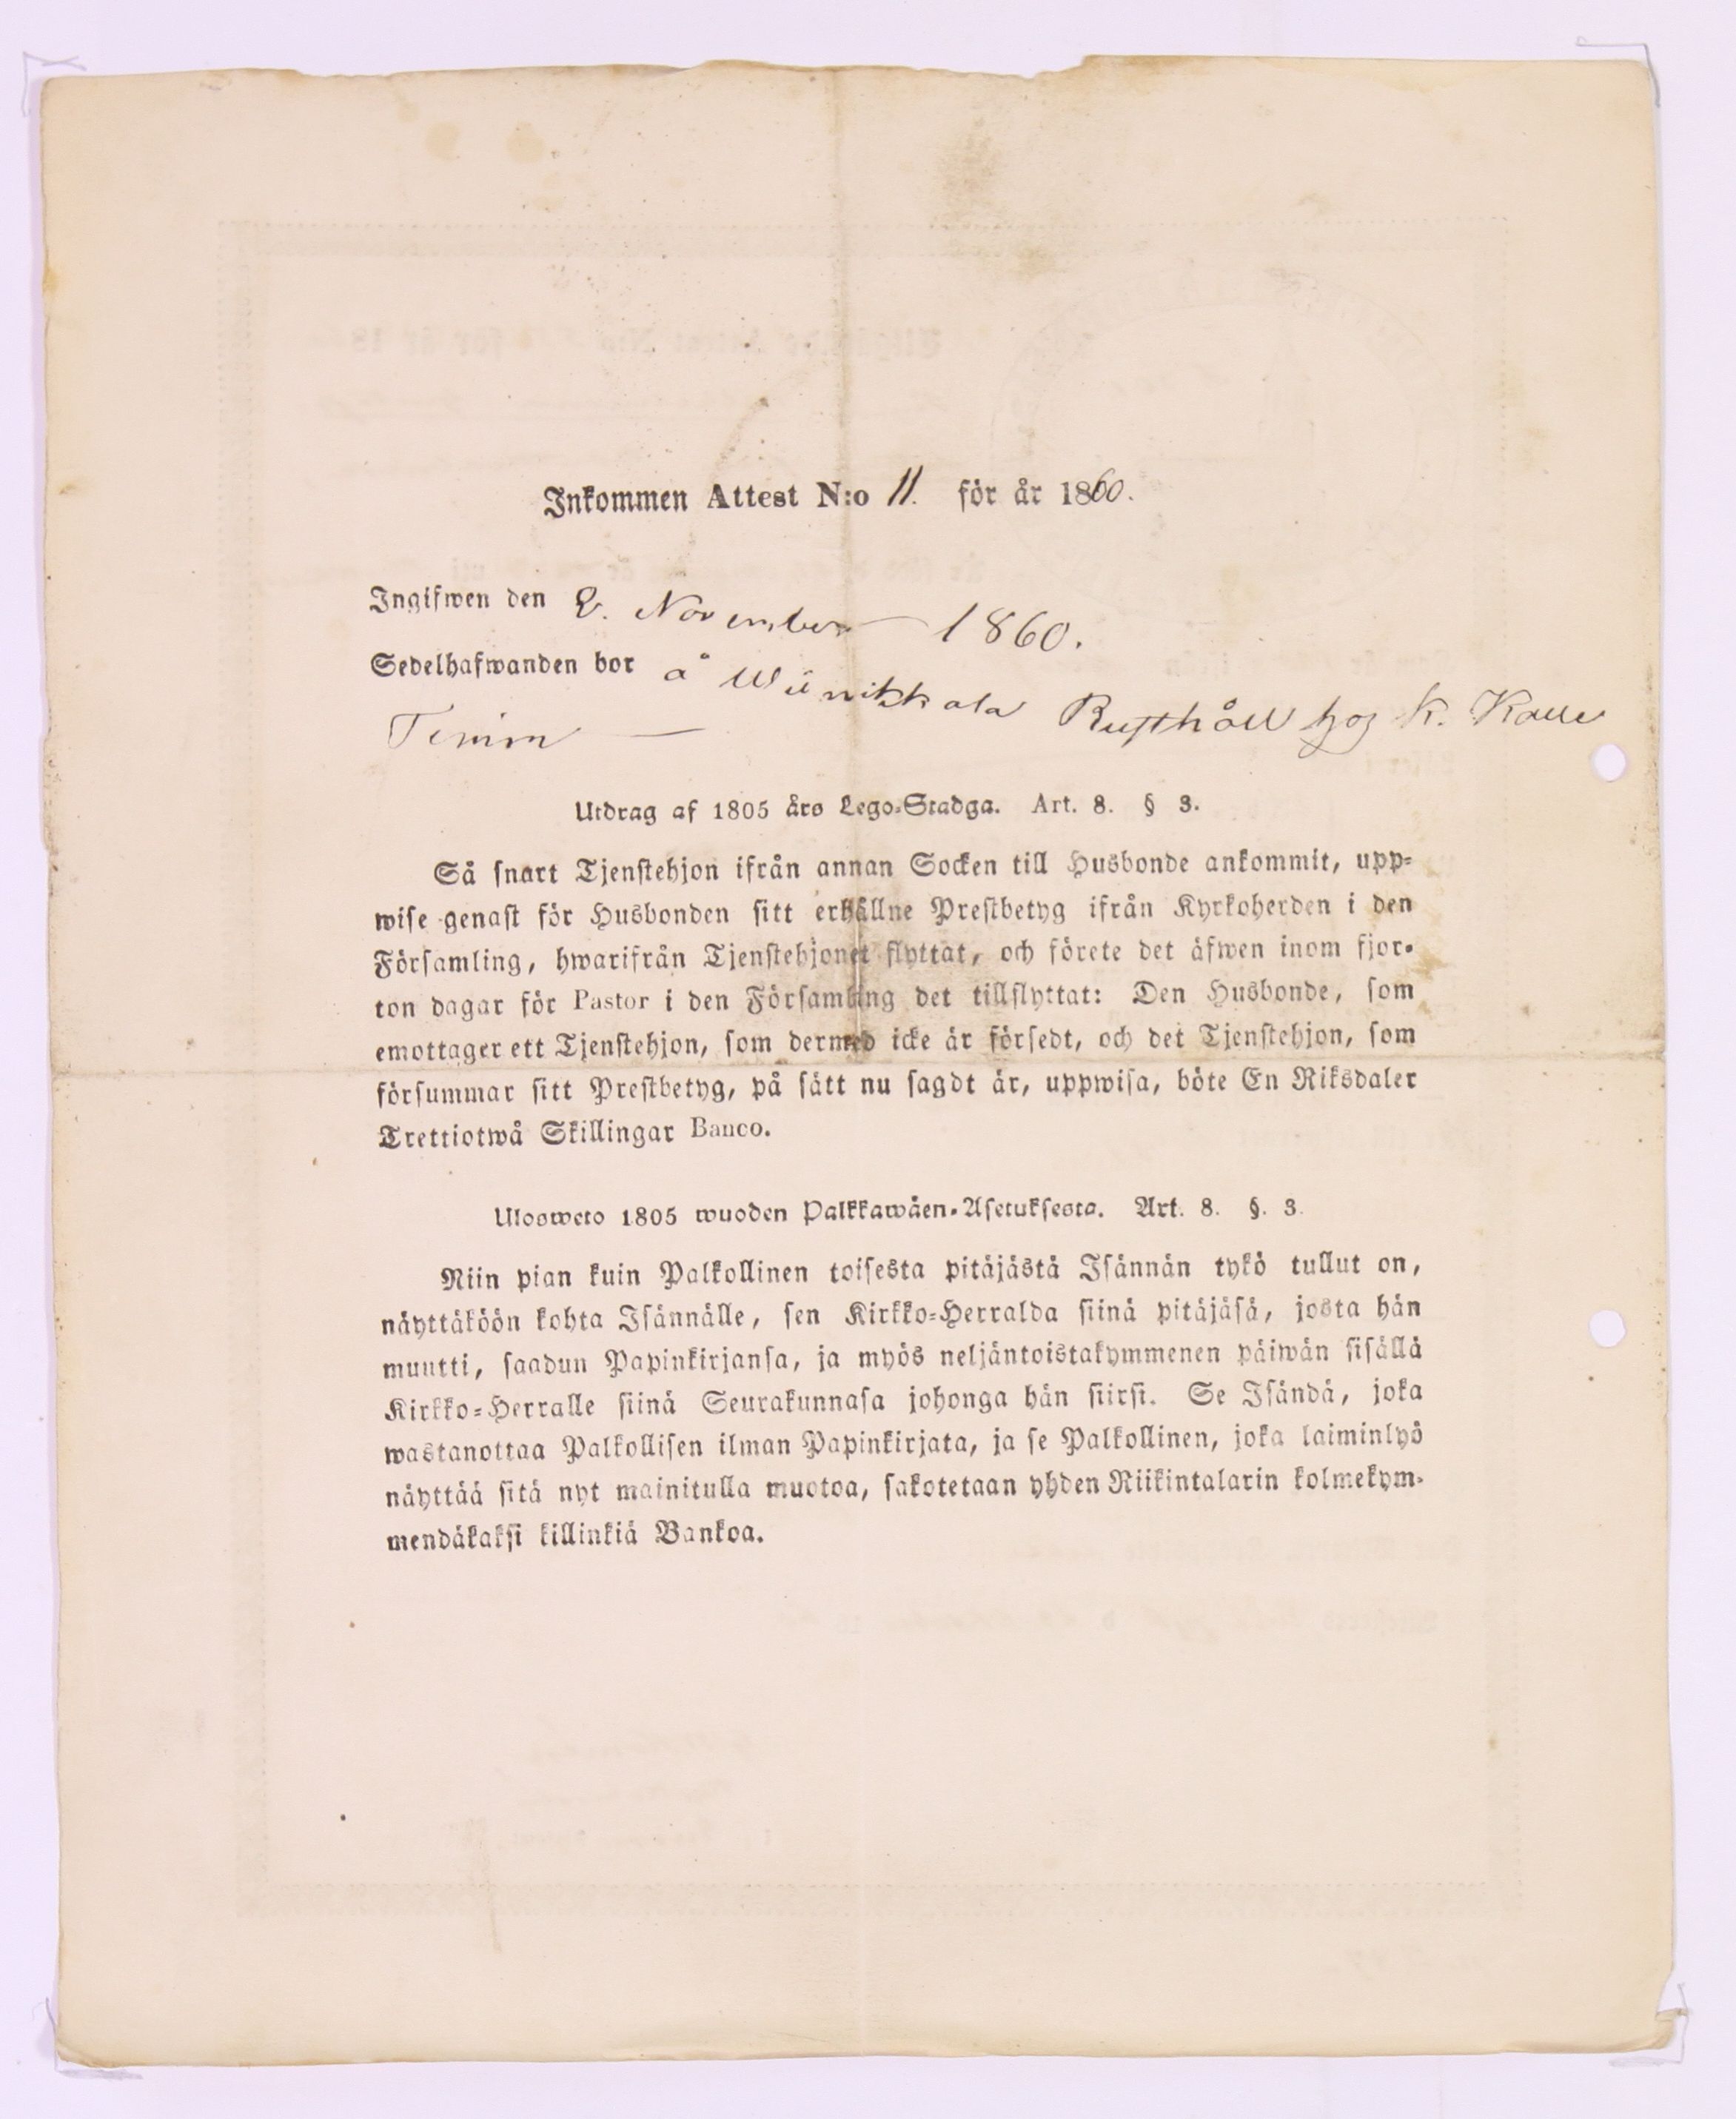 Inkommen Attest N:o 11. för år 1860.
Ingifwen den 2. November 1860.
Sedelhafwanden bor å Wiinikkala Rusthåll hos K. Kalle
Timm
Utdrag af 1805 års Lego-Stadga. Art. 8. § 3.
Så snart Tjenstehjon ifrån annan Socken till Husbonde ankommit, upp-
wise genast för Husbonden sitt erhållne Prestbetyg ifrån Kyrkoherden i den
Församling, hwarifrån Tjenstehjonet flyttat, och förete det äfwen inom fjor-
ton dagar för Pastor i den Församling det tillflyttat: Den Husbonde, som
emottager ett Tjenstehjon, som dermed icke är försedt, och det Tjenstehjon, som
försummar sitt Prestbetyg, på sätt nu sagdt är, uppwisa, böte En Riksdaler
Trettiotwå Skillingar Banco.
Ulosweto 1805 wuoden Palkkawäen-Asetuksesta. Art. 8. §. 3.
Niin pian kuin Palkollinen toisesta pitäjästä Isännän tykö tullut on,
näyttäköön kohta Isännälle, sen Kirkko-Herralda siinä pitäjäsä, josta hän
muutti, saadun Papinkirjansa, ja myös neljäntoistakymmenen päiwän sisällä
Kirkko-Herralle siinä Seurakunnasa johonga hän siirsi. Se Isändä, joka
wastanottaa Palkollisen ilman Papinkirjata, ja se Palkollinen, joka laiminlyö
näyttää sitä nyt mainitulla muotoa, sakotetaan yhden Riikintalarin kolmekym-
mendäkaksi killinkiä Bankoa.